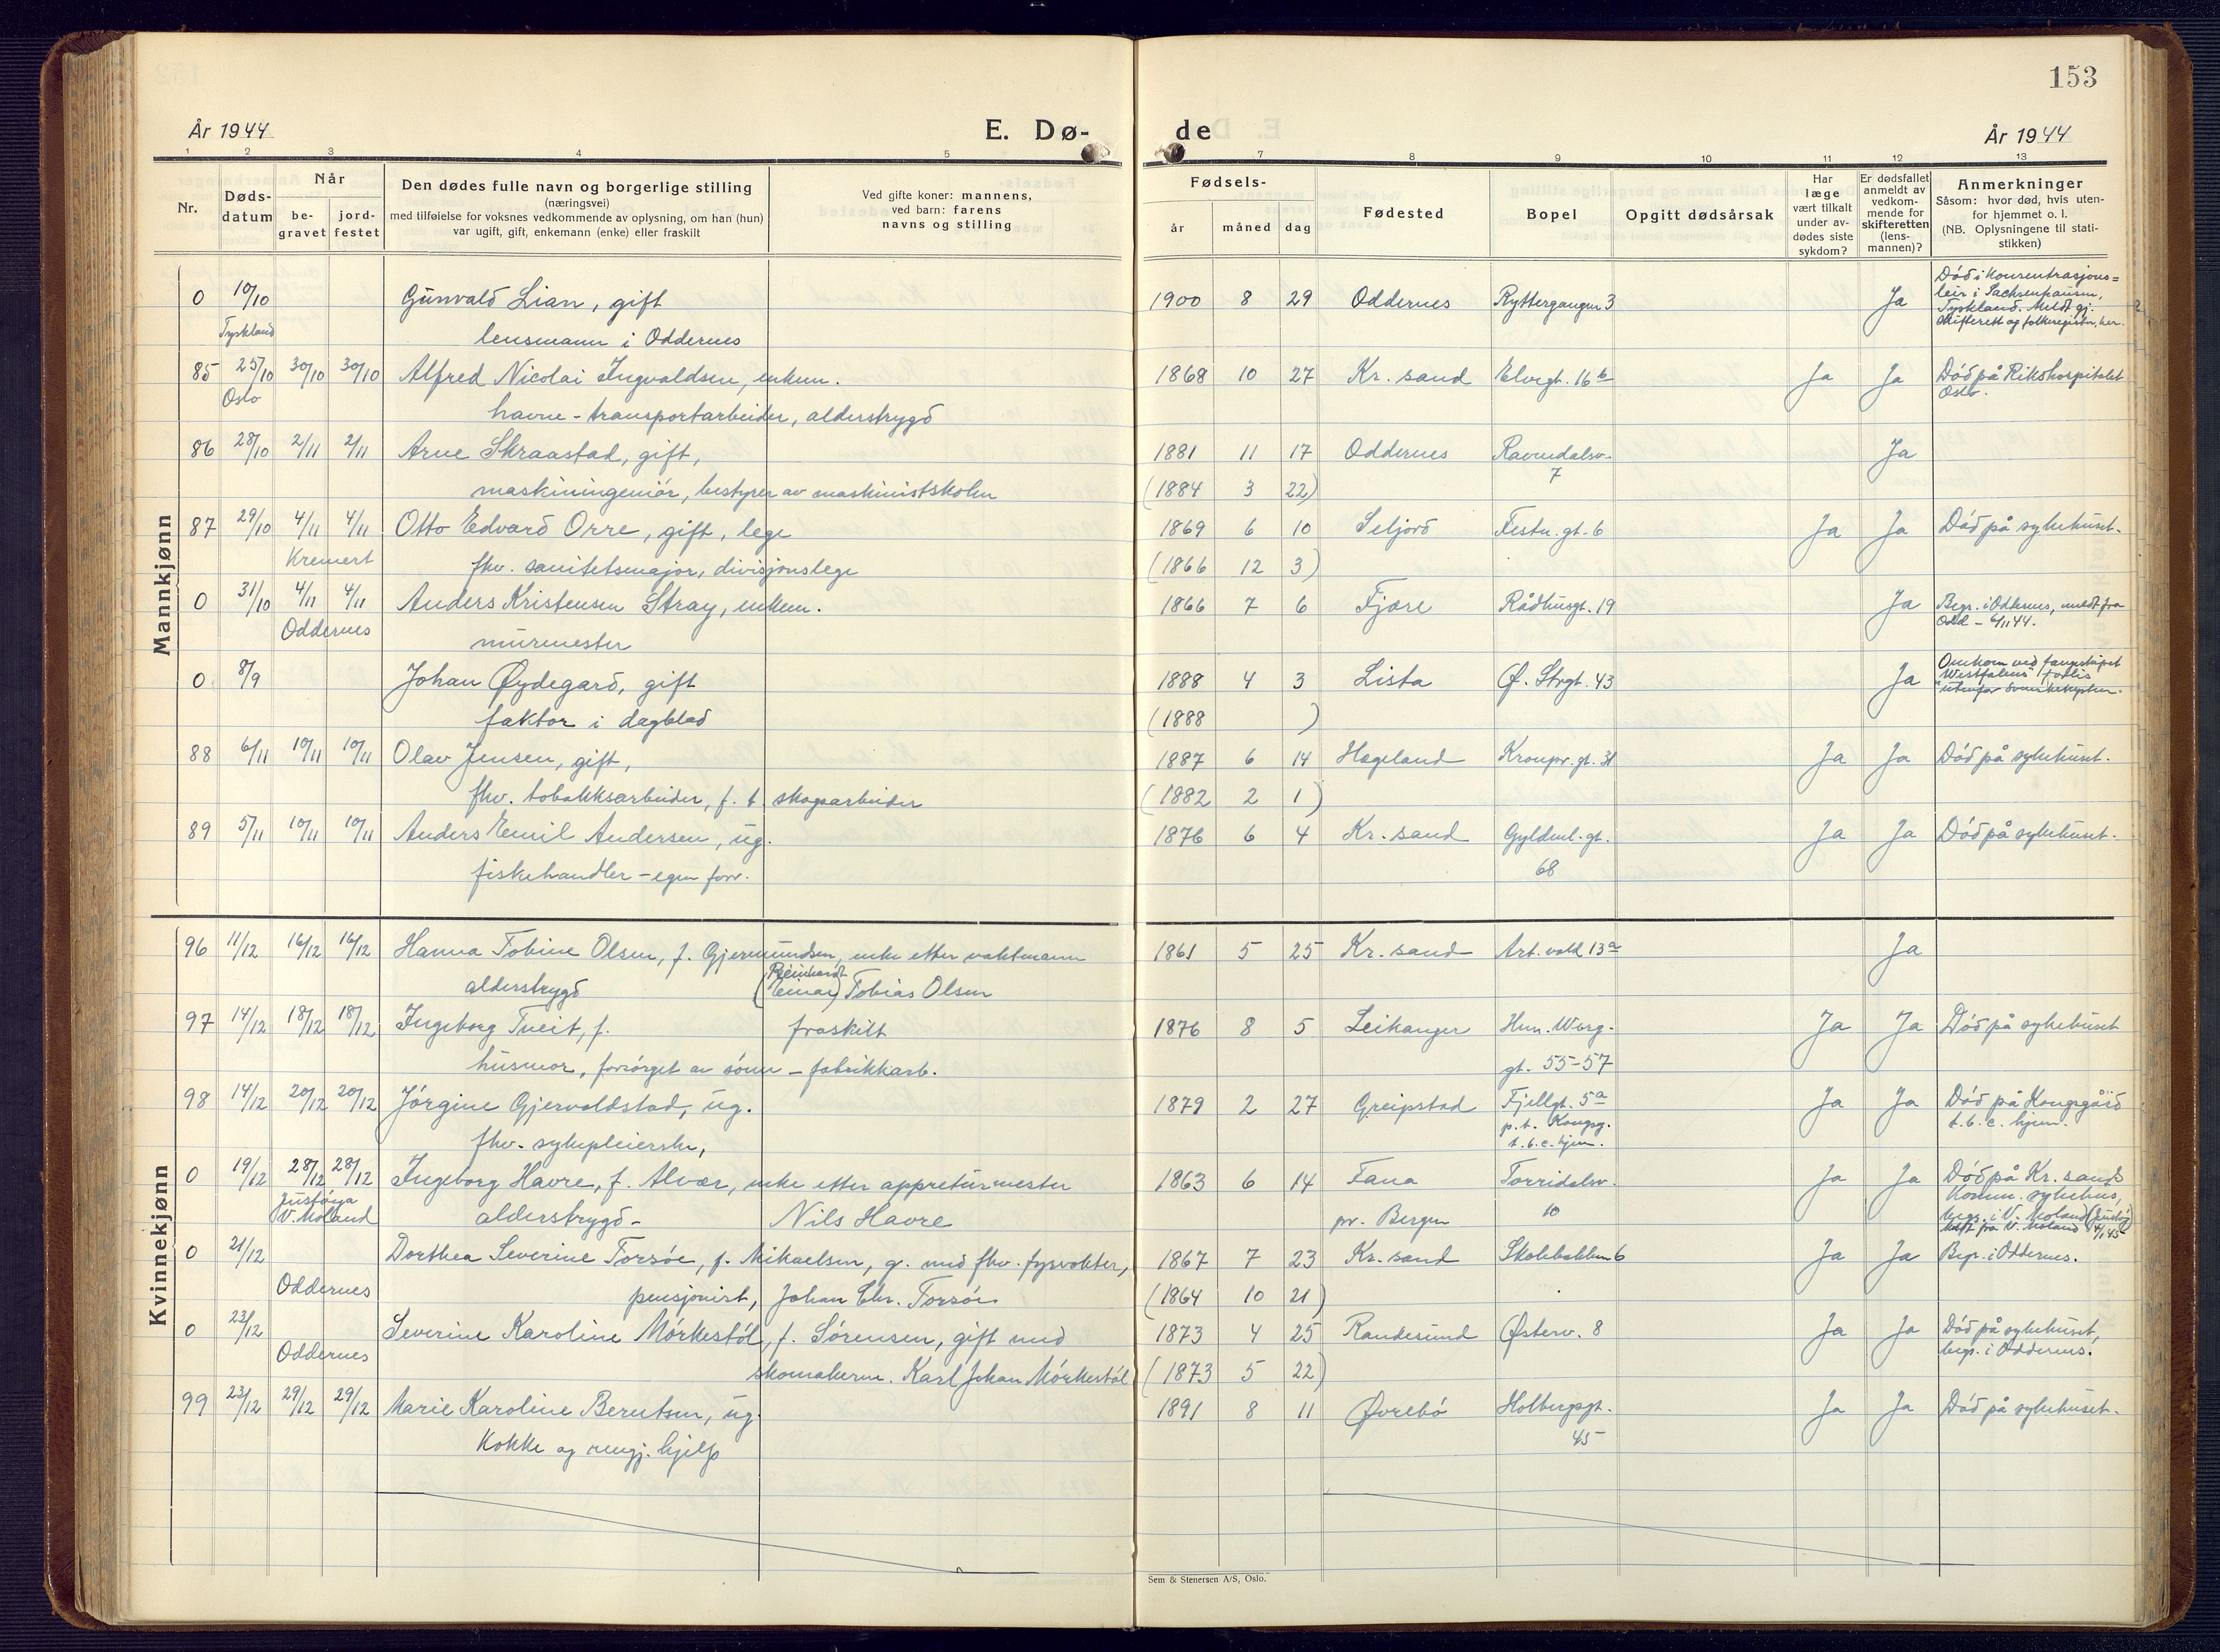 153
År 1944
E. Dø-
de
År 1944
1 2 3 4 5 7 8 9 10 11 12 13
Nr.
Døds-
datum
Når
be-
gravet
jord-
festet
Den dødes fulle navn og borgerlige stilling
(næringsvei)
med tilføielse for voksnes vedkommende av oplysning, om han (hun)
var ugift, gift, enkemann (enke) eller fraskilt
Ved gifte koner: mannens,
ved barn: farens
navns og stilling
Fødsels-
år måned dag
Fødested
Bopel
Opgitt dødsårsak
Har
læge
vært tilkalt
under av-
dødes siste
sykdom?
Er dødsfallet
anmeldt av
vedkom-
mende for
skifteretten
(lens-
mannen)?
Anmerkninger
Såsom: hvor død, hvis uten-
for hjemmet o. l.
(NB. Oplysningene til stati-
stikken)
Mannkjønn
0 10/10 Gunvald Lian, gift 1900 8 29 Oddernes Ryttergangen 3 Ja Död i Konsentrasjons=
leir i Sachsenhausen,
Tyskland. Meldt gj.
skifterett og folkeregistr. her.
Tyskland
lensmann i Oddernes
85 25/10 30/10 30/10 Alfred Nicolai Ingvaldsen, enkem. 1868 10 27 Kr. sand Elvegt. 16 b Ja Ja Död på Rikshospitalet
Oslo.
Oslo
havne-transportarbeider, alderstrygd
86 28/10 2/11 2/11 Arne Skraastad, gift, 1881 11 17 Oddernes Ravnedalsv. Ja
7
maskiningeniör, bestyrer av maskinistskolen (1884 3 22)
87 29/10 4/11 4/11 Otto Edvard Orre, gift, lege 1869 6 10 Seljord Festn. gt. 6 Ja Ja Död på sykehuset.
Kremert fhv. sanitetsmajor, divisjonslege (1866 12 3)
0 31/10 4/11 4/11 Anders Kristensen Stray, enkem. 1866 7 6 Fjære Rådhusgt. 19 Ja Begr. i Oddernes, meldt fra
Odd - 6/11 44.
Oddernes murmester
0 8/9 Johan Øydegard, gift 1888 4 3 Lista Ø. Strgt. 43 Ja Omkom ved fangskipet
"Westfalens" forlis
utenfor Svenskekysten.
faktor i dagblad (1888 )
88 6/11 10/11 10/11 Olav Jensen, gift, 1887 6 14 Hægeland Kronpr. gt. 31 Ja Ja Död på sykehuset.
fhv. tobakksarbeider, f. t. skogsarbeider (1882 2 1)
89 5/11 10/11 10/11 Anders Emil Andersen, ug. 1876 6 4 Kr. sand Gyldenl. gt. Ja Ja Död på sykehuset.
fiskehandler - egen forr. 68
Kvinnekjønn
96 11/12 16/12 16/12 Hanna Tobine Olsen, f. Gjermundsen, enke etter vaktmann 1861 5 25 Kr. sand Art. vold 13 a Ja
alderstrygd (Reinhardt
Einar) Tobias Olsen
97 14/12 18/12 18/12 Ingeborg Tveit, f. fraskilt 1876 8 5 Leikanger Hen. Werg- Ja Ja Död på sykehuset
husmor, forsörget av sönn - fabrikkarb. gt. 55-57
98 14/12 20/12 20/12 Jörgine Gjervoldstad, ug. 1879 2 27 Greipstad Fjellgt. 5 a Ja Ja Död på Kongsgård
t. b. c. hjem.
p. t. Kongsg.
t. b. c. hjem.
fhv. sykepleierske,
0 19/12 28/12 28/12 Ingeborg Havre, f. Alvær, enke etter appreturmester 1863 6 14 Fana Torridalsv. Ja Ja Död på Kr. sands
Komm. sykehus,
begr. i V. Moland (Justöy)
Meldt fra V. Moland 4/1 45
Justöya
V. Moland alderstrygd- Nils Havre pr. Bergen 10
0 21/12 Dorthea Severine Torsöe, f. Mikaelsen, g. med fhv. fyrvokter, 1867 7 23 Kr. sand Skolebakken 6 Ja Ja Begr. i Oddernes.
Oddernes pensjonist, Johan Chr. Torsöe (1864 10 21)
0 23/12 Severine Karoline Mörkestöl, f. Sörensen, gift med 1873 4 25 Randesund Østerv. 8 Ja Ja Död på sykehuset,
begr. i Oddernes.
Oddernes skomakerm. Karl Johan Mörkestöl (1873 5 22)
99 23/12 29/12 29/12 Marie Karoline Berntsen, ug. 1891 8 11 Øvrebö Holbergsgt. Ja Ja Död på sykehuset.
Kokke og rengj. hjelp 45
Sem & Stenersen A/S, Oslo.